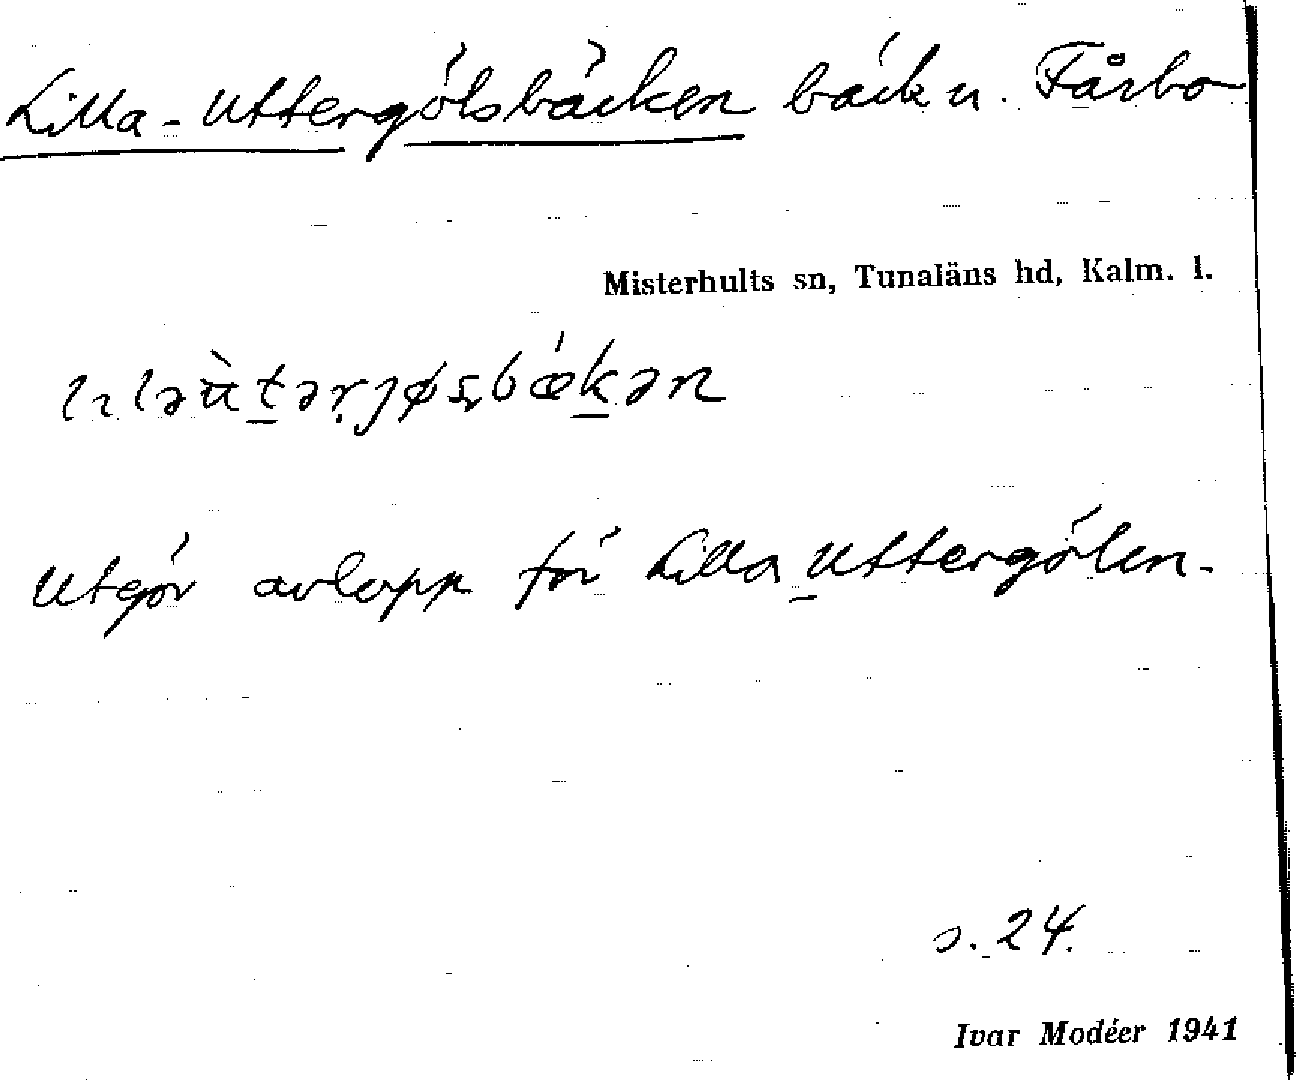 Lilla-Uttergölsbäcken bäck u. Fårbo
Misterhults sn, Tunaläns hd, Kalm. l.
Utgör avlopp för Lilla Uttergölen.
s. 24.
Ivar Modéer 1941